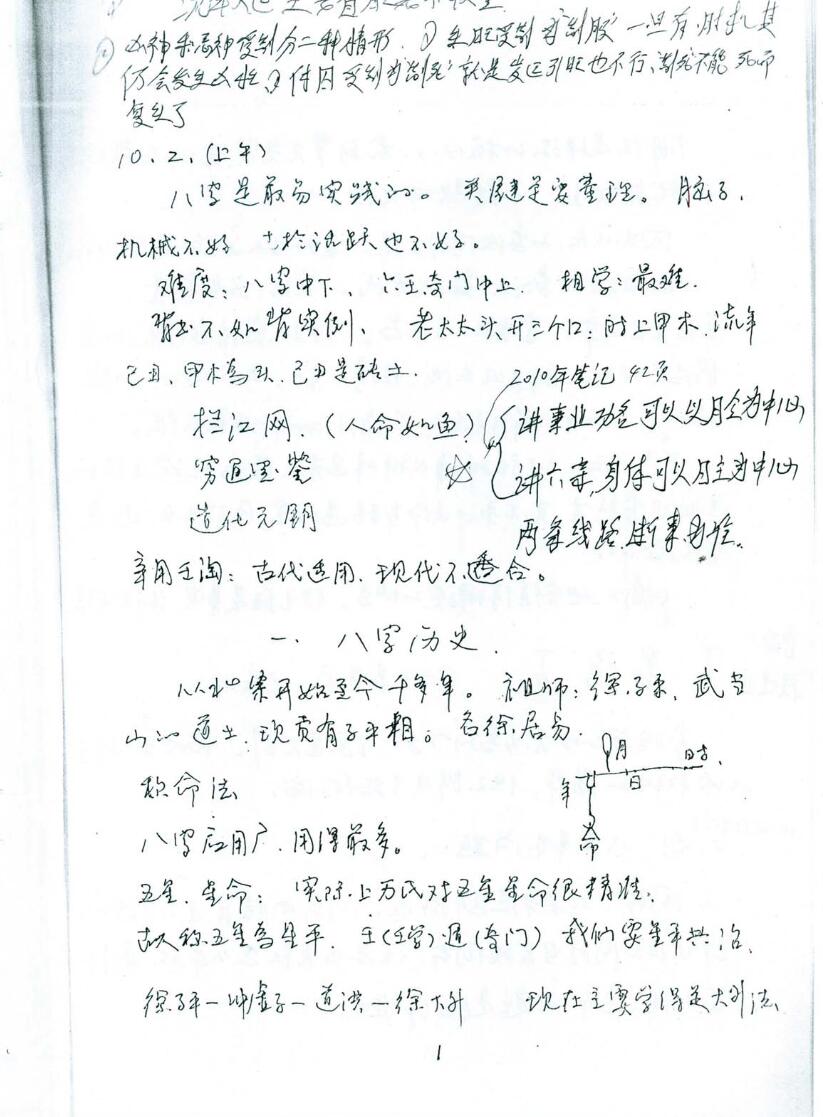 ① 凶神和忌神受制分二种情形，① 生旺受制为"制服"一旦有时机其
仍会发生凶性，② 休囚受制为"制死"就是岁运引旺也不行，制死不能死而
复生了
10.2.(上午)
八字是最易实践的。关键是要整理。脑子，
机械不好 太于活跃也不好。
难度：八字中下、六壬奇门中上. 相学：最难.
背书不如背实例、老太太头开三个口：时上甲木 流年
己丑、甲木为头. 己丑是砖土.
2010年笔记42页
拦江网.（人命如鱼）
讲事业功名可以以月令为中心
☆
穷通宝鉴
讲六亲，身体可以日主为中心
造化元钥
两条线路. 断事易验.
辛用壬淘：古代适用. 现代不适合。
一. 八字历史.
从北宋开始至今千多年。祖师：徐子平. 武当
山的道士. 现黄有子平相。名徐居易.
月 时.
年 日
称命法
命
八字应用广. 用得最多。
五星. 星命： 实际上万氏对五星星命很精准.
故人称五星为星平. 壬(壬学)遁(奇门) 我们要星平共治.
徐子平一冲虚子一道洪一徐大升 现在主要学得是大升法.
1